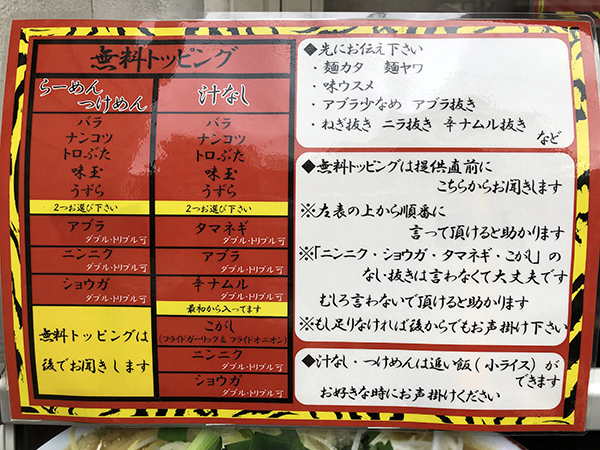 無料トッピング
らーめん
つけめん
バラ
ナンコツ
トロぶた
味玉
うずら
2つお選び下さい
アブラ
ダブル・トリプル可
ニンニク
ダブル・トリプル可
ショウガ
ダブル・トリプル可
無料トッピングは
後でお聞きします
汁なし
バラ
ナンコツ
トロぶた
味玉
うずら
2つお選び下さい
タマネギ
ダブル・トリプル可
アブラ
ダブル・トリプル可
辛ナムル
ダブル・トリプル可
最初から入ってます
こがし
(フライドガーリック&フライドオニオン)
ニンニク
ダブル・トリプル可
ショウガ
ダブル・トリプル可
◆先にお伝え下さい
・麺カタ 麺ヤワ
・味ウスメ
・アブラ少なめ アブラ抜き
・ねぎ抜き ニラ抜き 辛ナムル抜き
など
◆無料トッピングは提供直前に
こちらからお聞きします
※左表の上から順番に
言って頂けると助かります
※「ニンニク・ショウガ・タマネギ・こがし」の
なし・抜きは言わなくて大丈夫です
むしろ言わないで頂けると助かります
※もし足りなければ後からでもお声掛け下さい
◆汁なし・つけめんは追い飯(小ライス)が
できます
お好きな時にお声掛けください